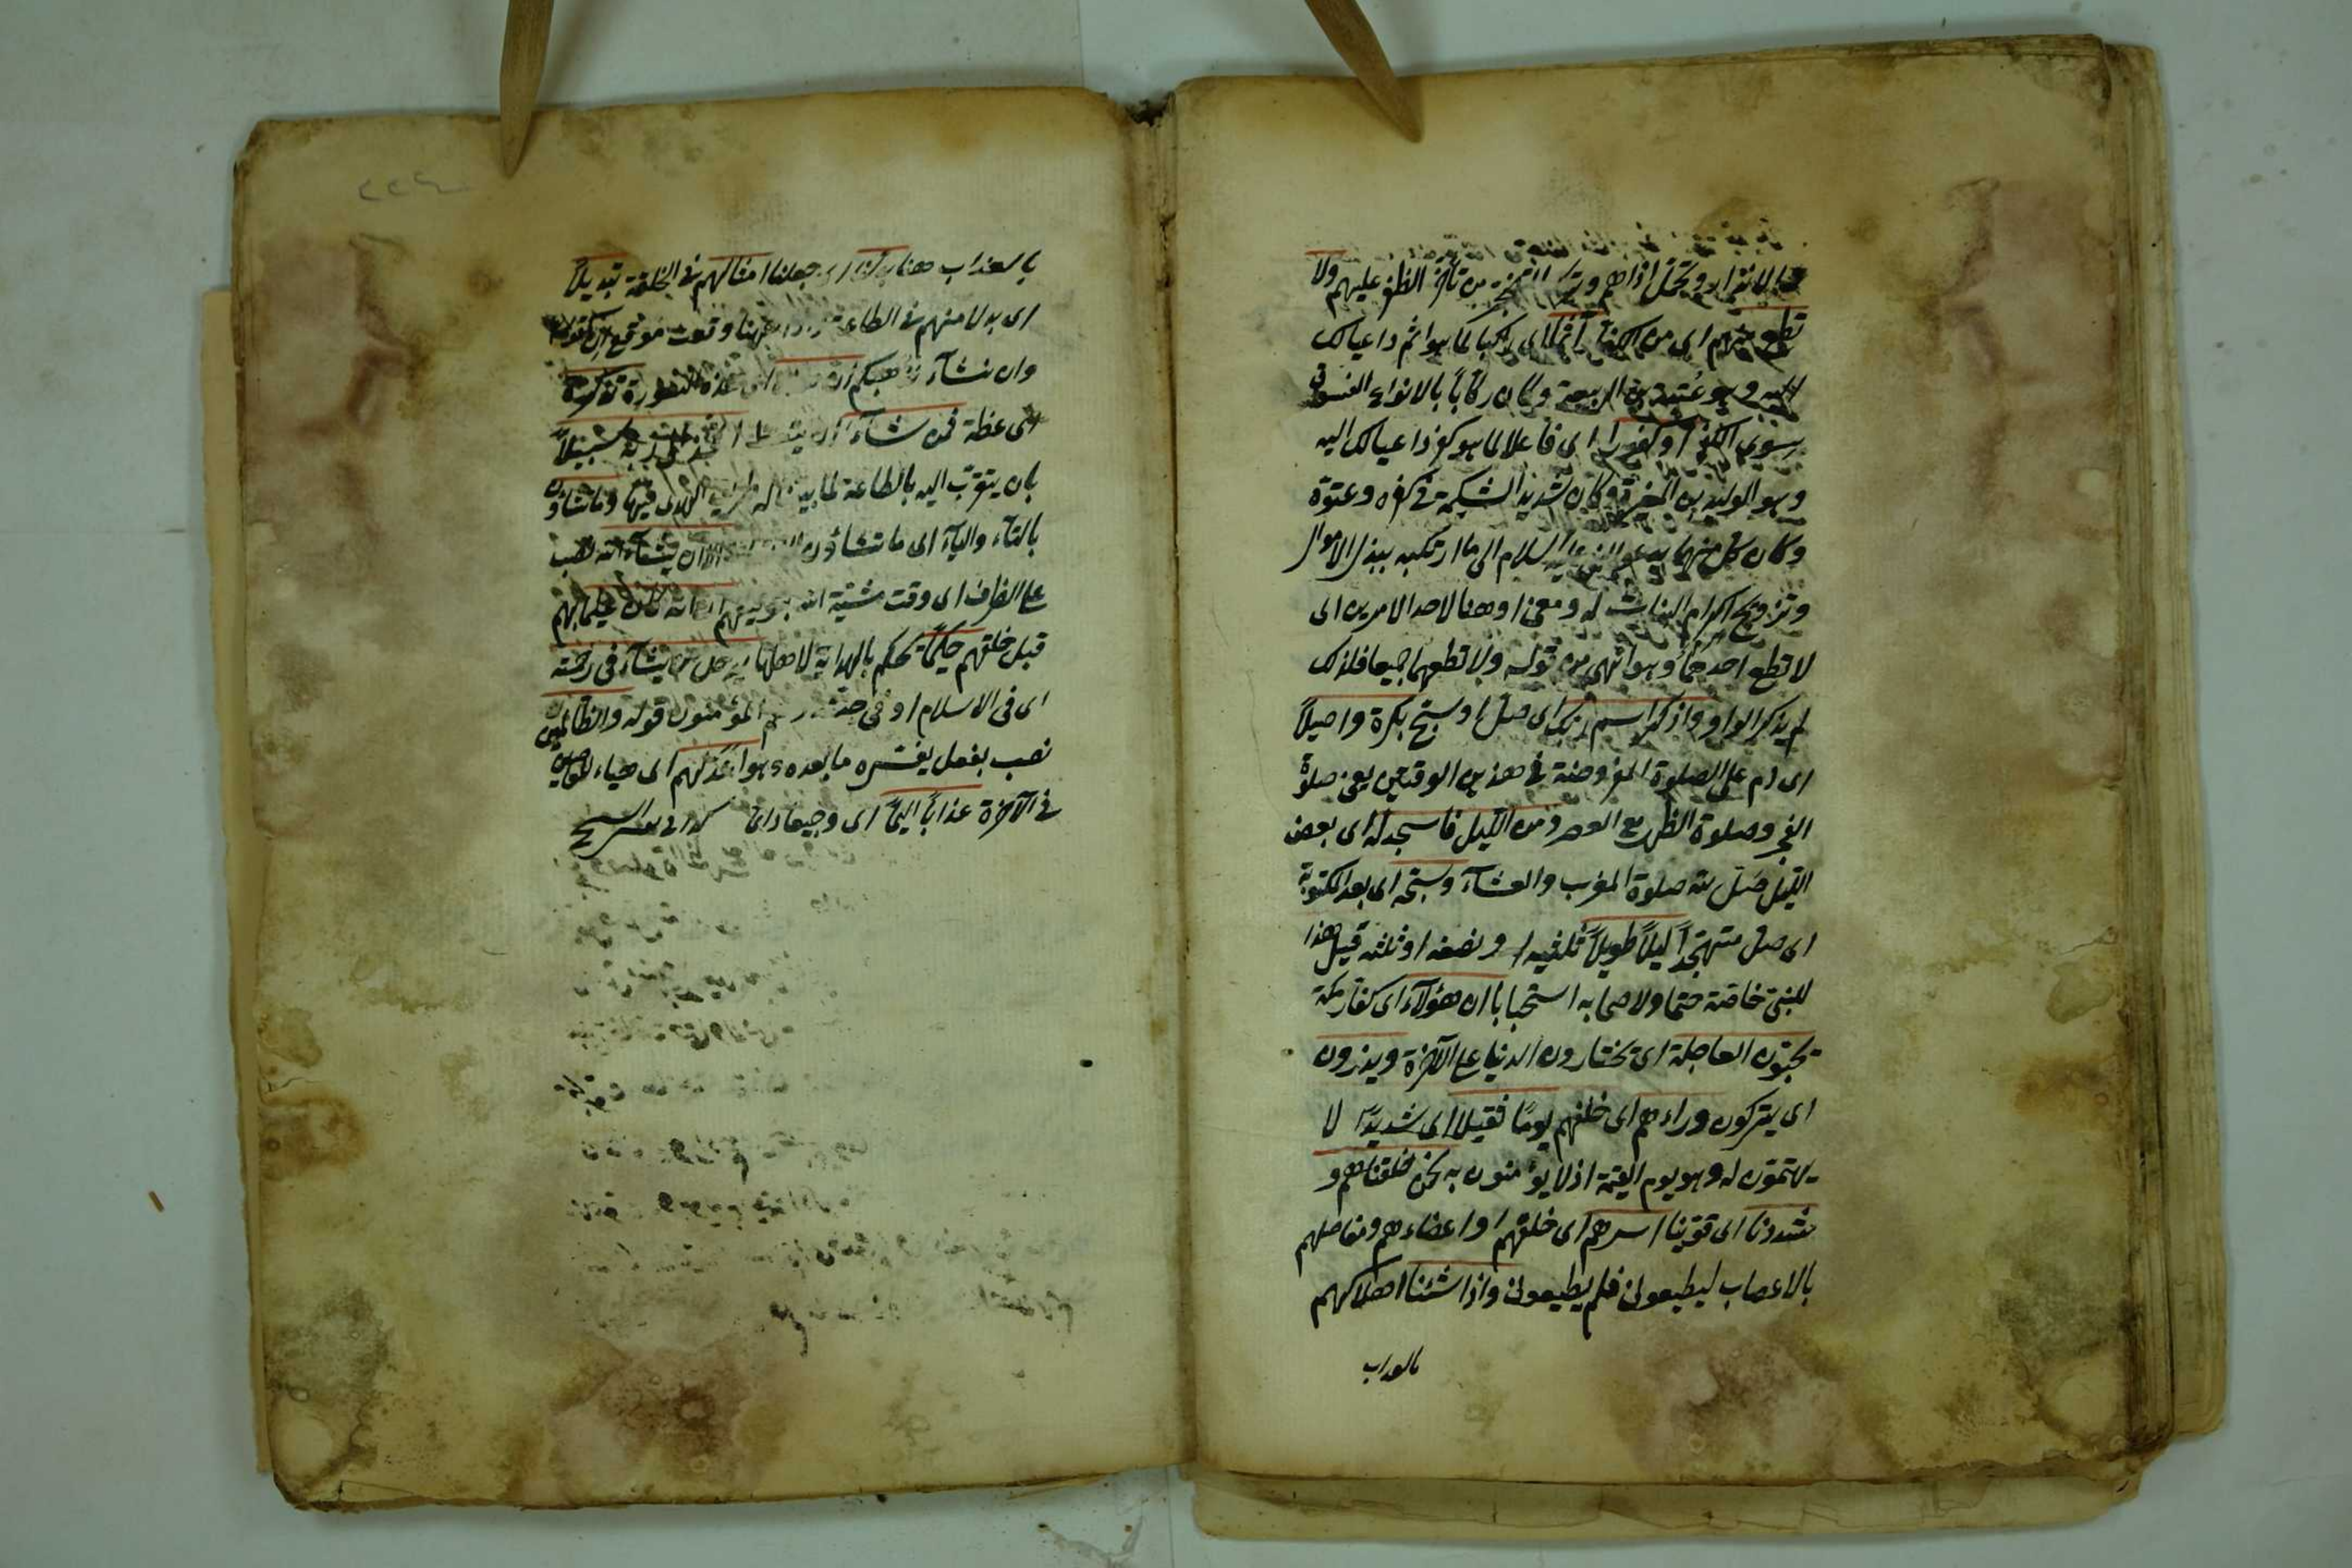 والاضرار وتحمل اذاهم وترك من تأخر الظفر عليهم ولا
تطع منهم اى من الكفار آثما اى راكبا لما هو اثم داعيا لك
اليه وهو عتبة بن الربيعة وكان ركابا بالانواع الفسوق
سوى الكفر او كفورا اى فاعلا لما هو كفر داعيا لك اليه
وهو الوليد بن المغيرة وكان شديد الشكيمة فى كفره وعتوه
وكان كل منهما يدعو النبى عليه السلام الى ما ارتكبه ببذل الاموال
وتزويج اكرام البنات له ومعنى او هنا لاحد الامرين اى
لا تطع احدهما وهو انهى من قوله ولا تطعهما جميعا فلذلك
لم يذكر الواو واذكر اسم ربك اى صل او سبح بكرة واصيلاً
اى دم على الصلوة المفروضة فى هذين الوقتين يعنى صلوة
الفجر وصلوة الظهر مع العصر ومن الليل فاسجد له اى بعض
الليل فصل لله صلوة المغرب والعشآء وسبحه اى بعد المكتوبة
اى صل متهجداً ليلاً طويلاً ثلثيه او نصفه او ثلثه قيل هذا
للنبى خاصة حتما ولاصحابه استحبابا ان هؤلآء اى كفار مكة
يحبون العاجلة اى يختارون الدنيا على الآخرة ويذرون
اى يتركون وراءهم اى خلفهم يومًا ثقيلا اى شديدًا لا
يهتمون له وهو يوم القيمة اذ لا يؤمنون به نحن خلقناهم و
شددنا اى قوينا اسرهم اى خلقهم او اعضاءهم ومفاصلهم
بالاعصاب ليطيعونى فلم يطيعونى واذا شئنا اهلاكهم
بالعذاب
بالعذاب هنا بدلنا اى جعلنا امثالهم فى الخلقة تبديلاً
اى بدلا منهم فى الطاعة واذا ههنا وقعت موقع ان كقوله
وان نشآء نذهبكم ان هذه اى هذه السورة تذكرة
اى عظة فمن شآء ان يتعظ اتخذ الى ربه سبيلاً
بان يتقرب اليه بالطاعة لما بينا له طريق الهدى فيها وما تشاؤن
بالتاء واليآء اى ما تشاؤن الا ان يشآء الله نصب
على الظرف اى وقت مشية الله بتوفيقهم ان الله كان عليما بهم
قبل خلقهم حكيمًا يحكم بالهداية لاهلها يدخل من يشآء فى رحمته
اى فى الاسلام او فى جنته وهم المؤمنون قوله والظالمين
نصب بفعل يفسره ما بعده وهو اعد لهم اى هياء للعاصين
فى الآخرة عذاباً اليمًا اى وجيعا دائما